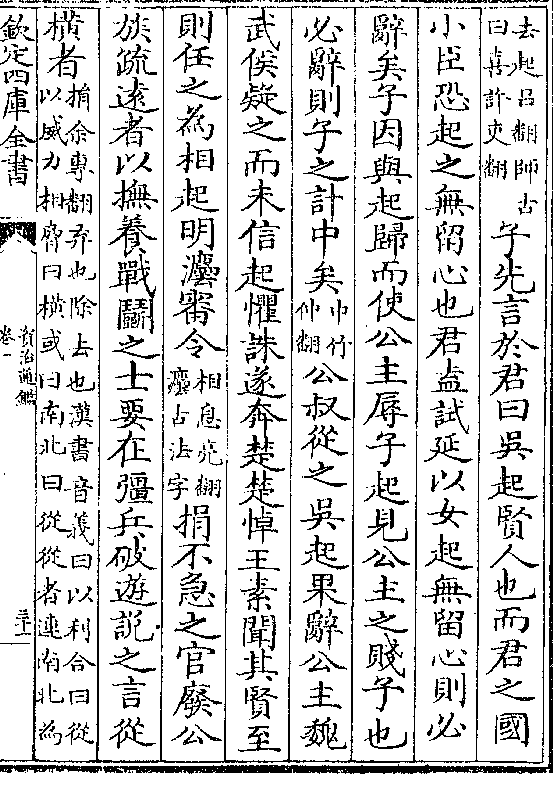 去起呂翻師古
曰喜許吏翻
子先言於君曰吳起賢人也而君之國
小臣恐起之無留心也君盍試延以女起無留心則必
辭矣子因與起歸而使公主辱子起見公主之賤子也
必辭則子之計中矣
中竹
仲翻
公叔從之吳起果辭公主魏
武侯疑之而未信起懼誅遂奔楚楚悼王素聞其賢至
則任之為相起明灋審令
相息亮翻
灋古法字
捐不急之官廢公
族疏遠者以撫養戰鬬之士要在彊兵破遊説之言從
橫者
捐余專翻弃也除去也漢書音義曰以利合曰從
以威力相脅曰橫或曰南北曰從從者連南北為
欽定四庫全書
資治通鑑
卷一
三十一